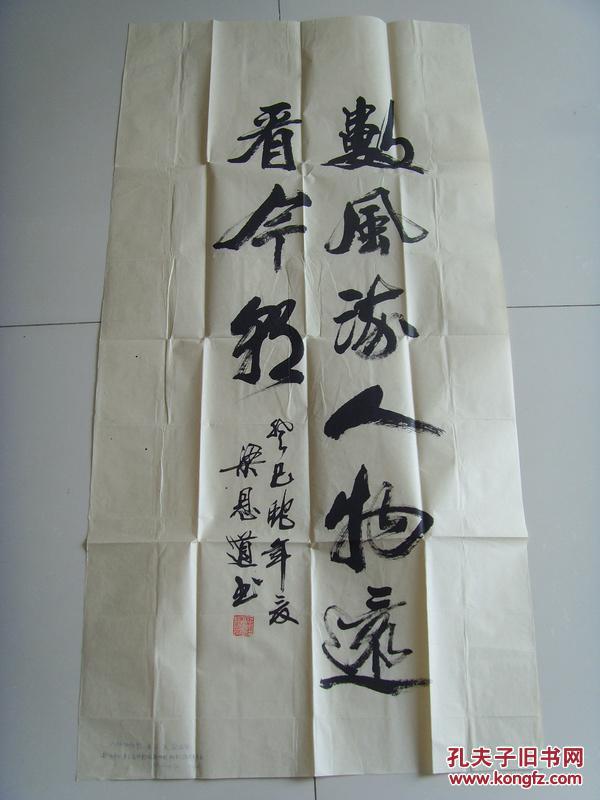 數風流人物還
看今朝
癸巳蛇年夏
梁恩道书
孔夫子旧书网
www.kongfz.com